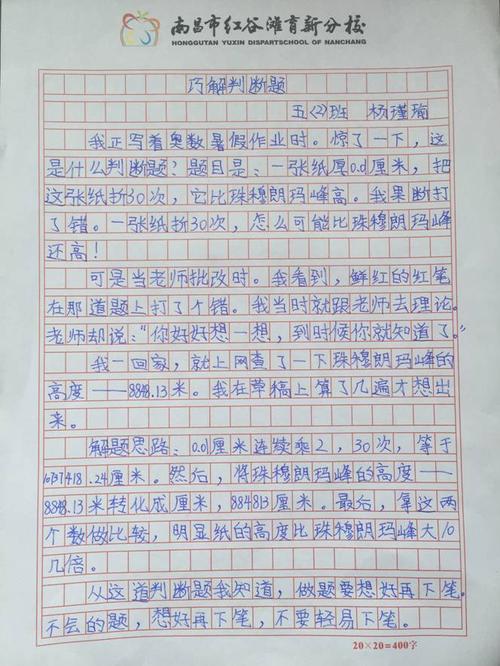 南昌市红谷滩育新分校
HONGGUTAN YUXIN DISPARTSCHOOL OF NANCHANG
巧解判断题
五〈2〉班 杨瑾瑜
我正写着奥数暑假作业时。惊了一下，这
是什么判断题？题目是：一张纸厚0.01厘米，把
这张纸折30次，它比珠穆朗玛峰高。我果断打
了错。一张纸折30次，怎么可能比珠穆朗玛峰
还高！
可是当老师批改时。我看到，鲜红的红笔
在那道题上打了个错。我当时就跟老师去理论。
老师却说：“你好好想一想，到时候你就知道了。”
我一回家，就上网查了一下珠穆朗玛峰的
高度——8848.13米。我在草稿上算了几遍才想出
来。
解题思路：0.01厘米连续乘2，30次，等于
10737418.24厘米。然后，将珠穆朗玛峰的高度——
8848.13米转化成厘米，884813厘米。最后，拿这两
个数做比较，明显纸的高度比珠穆朗玛峰大10
几倍。
从这道判断题我知道，做题要想好再下笔。
不会的题，想好再下笔，不要轻易下笔。
20×20=400字